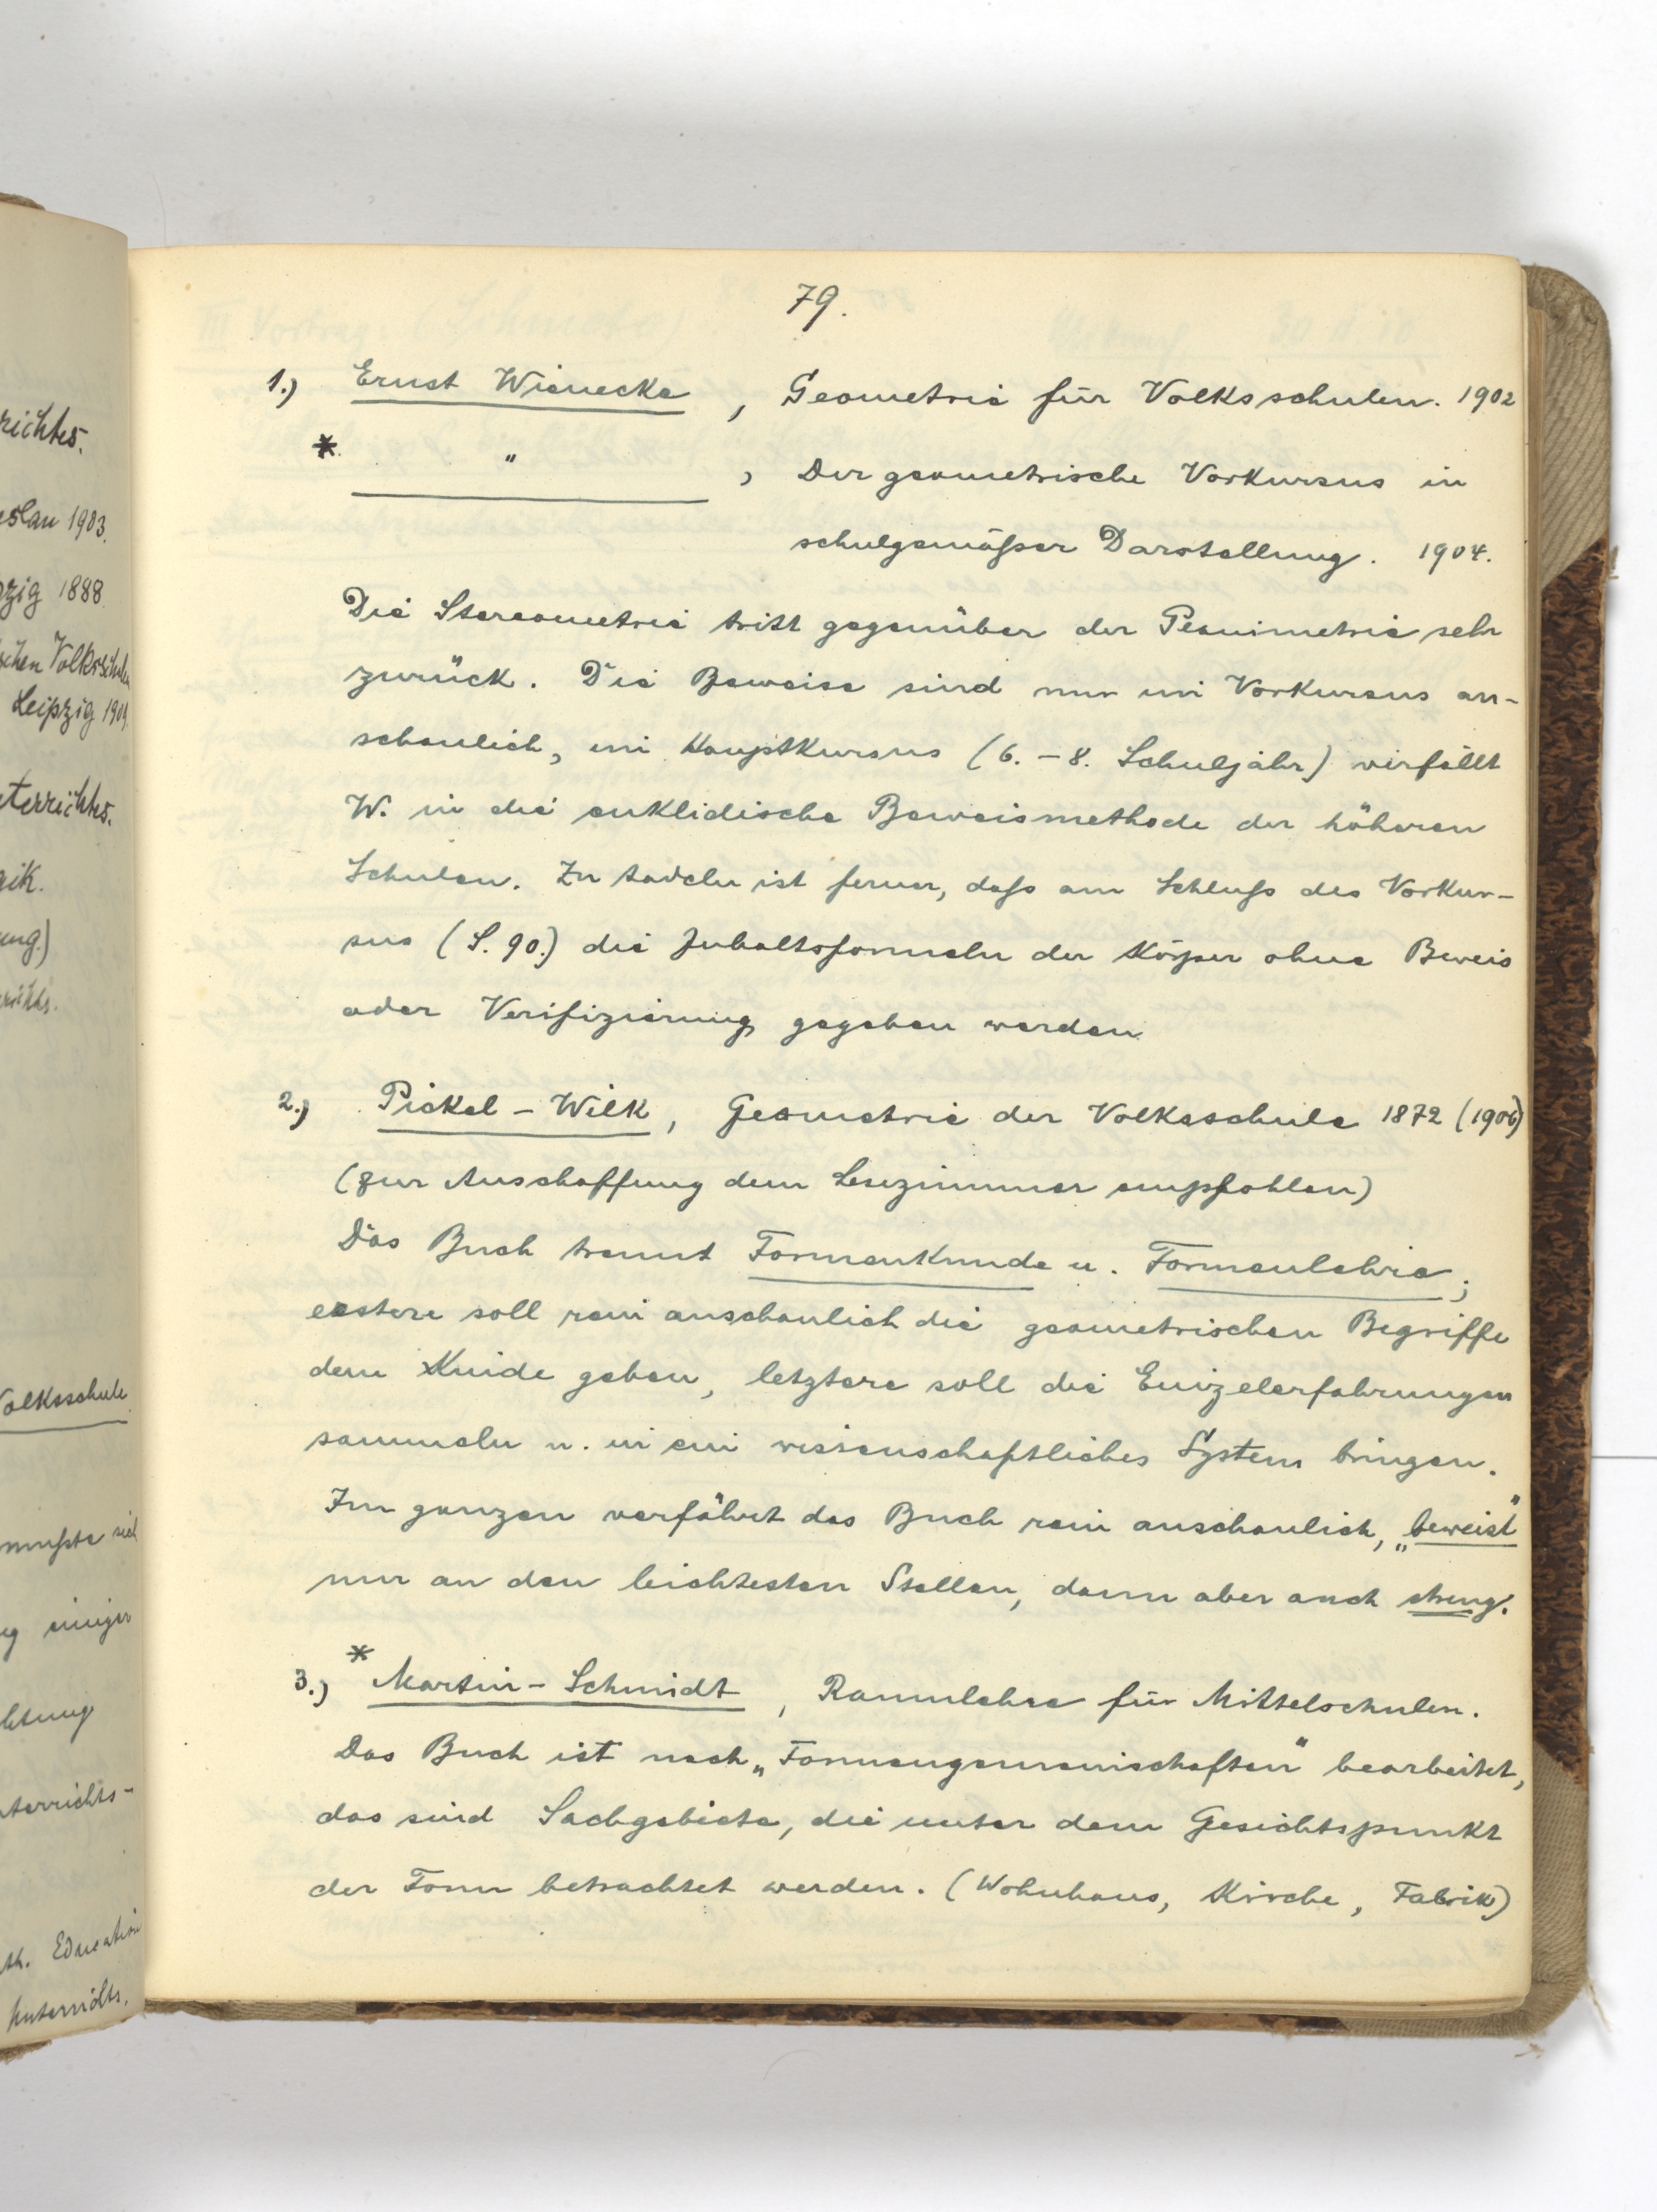 79.
1.) Ernst Wienecke, Geometrie für Volksschulen. 1902
* " , Der geometrische Vorkursus in
schulgemäßer Darstellung. 1904.
Die Stereometrie tritt gegenüber der Planimetrie sehr
zurück. Die Beweise sind nur im Vorkursus an-
schaulich, im Hauptkursus (6. - 8. Schuljahr) verfällt
W. in die euklidische Beweismethode der höheren
Schulen. Zu tadeln ist ferner, daß am Schluß des Vorkur-
sus (S. 90.) die Inhaltsformeln der Körper ohne Beweis
oder Verifizierung gegeben werden
2.) Pickel - Wilk, Geometrie der Volksschule 1872 (1906)
(Zur Anschaffung dem Lesezimmer empfohlen)
Das Buch trennt Formenkunde u. Formenlehre;
erstere soll rein anschaulich die geometrischen Begriffe
dem Kinde geben, letztere soll die Einzelerfahrungen
sammeln u. in ein wissenschaftliches System bringen.
Im ganzen verfährt das Buch rein anschaulich, „beweist"
nur an den leichtesten Stellen, dann aber auch streng.
3.) * Martin - Schmidt, Raumlehre für Mittelschulen.
Das Buch ist nach „Formengemeinschaften" bearbeitet,
das sind Sachgebiete, die unter dem Gesichtspunkt
der Form betrachtet werden. (Wohnhaus, Kirche, Fabrik)
richtes.
eslau 1903.
zig 1888
schen Volksschule
Leipzig 1909
terrichtes.
gik.
ung.)
Volksschule
mußte sich
einiger
terrichts-
th. Education
Unterrichts.